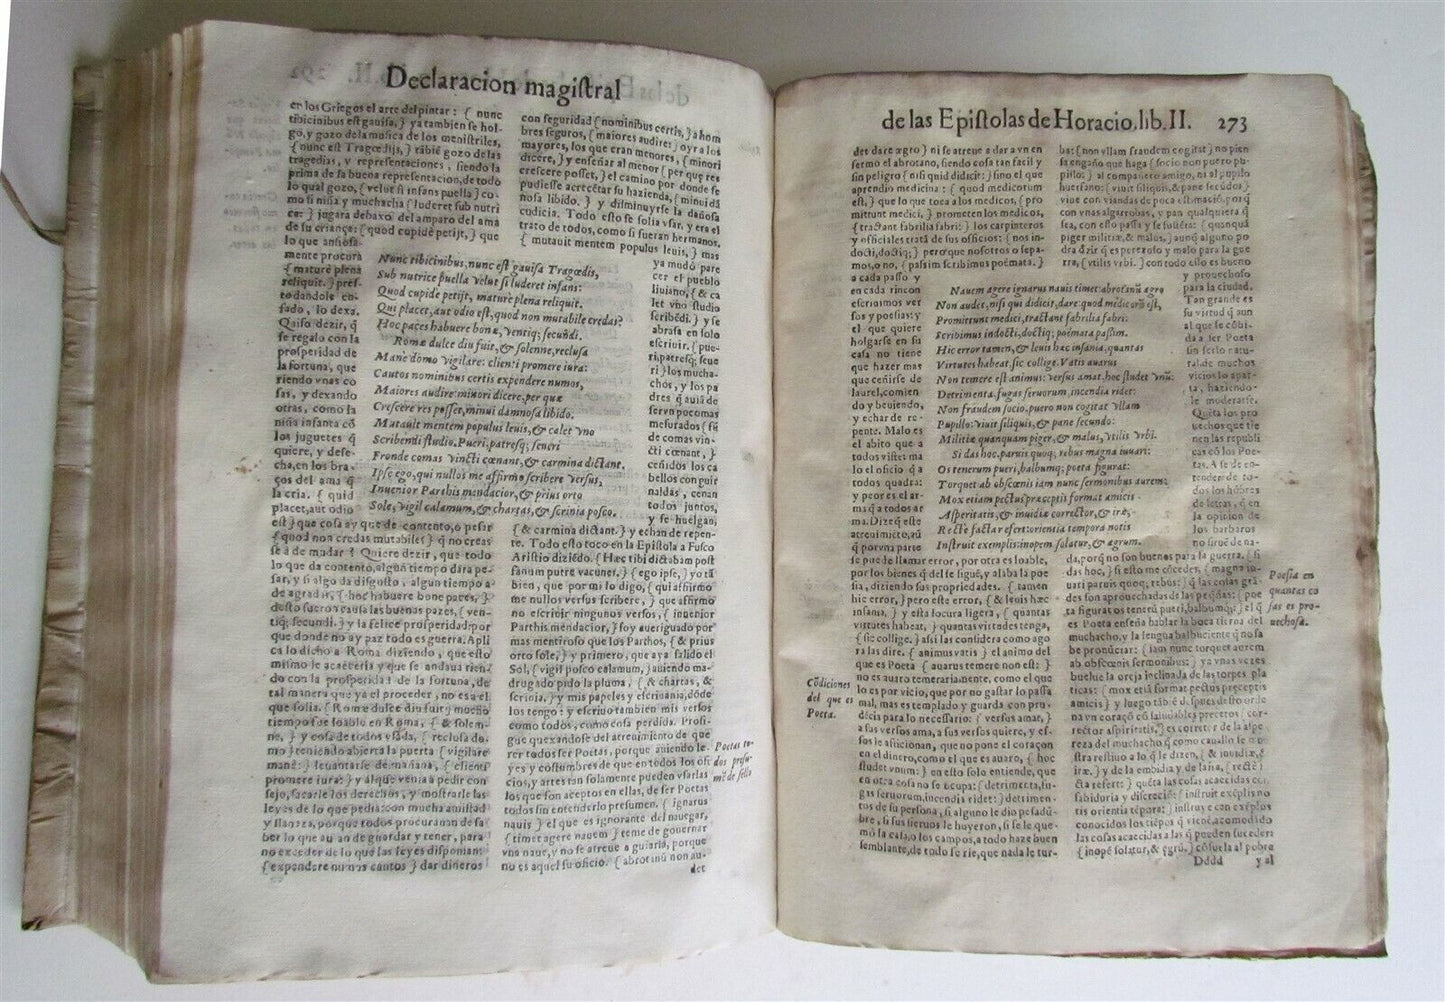 Declaracion magistral
en los Griegos el arte del pintar: { nunc
tibicinibus est gauisa, } ya tambien se hol-
go, y gozo de la musica de los menistriles,
{ nunc est Tragœdijs, } tābiē gozo de las
tragedias, y representaciones, siendo la
prima de sa buena representacion, de todo
lo qual gozo, { velut si infans puella } co-
mo si niña y muchacha { luderet sub nutri
ce: } jugara debaxo del amparo del ama
de su criança: { quod cupidè petijt, } que
lo que ansiosa-
mente procura
{ maturè plena
reliquit. } pres-
to dandole en-
fado, lo dexa.
Quiso dezir, q̃
se regalo con la
prosperidad de
la fortuna, que
riendo vnas co
sas, y dexando
otras, como la
niña infanta cõ
los juguetes q̃
quiere, y dese-
cha, en los bra-
ços del ama q̃
la cria. { quid
placet, aut odio
est } que cosa ay que de contento, o pesar
{ quod non credas mutabile? } q̃ no creas
se à de mudar? Quiere dezir, que todo
lo que da contento, algun tiempo dara pe-
sar, y si algo da disgusto, algun tiempo a-
de agradar, { hoc habuere bonæ paces, }
desto fueron causa las buenas pazes, { ven-
tiq; secundi. } y la felice prosperidad: por
que donde no ay paz todo es guerra. Apli
ca lo dicho a Roma diziendo, que esto
mismo le acaeceria y que se andaua rien-
do con la prosperidad de la fortuna, de
tal manera que ya el proceder, no es a el
que solia. { Romæ dulce diu fuit, } mucho
tiempo fue loable en Roma, { & solen-
ne, } y cosa de todos vsada, { reclusa do-
mo } teniendo abierta la puerta { vigilare
mane: } leuantarse de mañana, { clienti
promere iura: } y al que venia a pedir con
sejo, sacarle los derechos, y mostrarle las
leyes de lo que pedia: con mucha amistad
y llaneza, porque todos procurauan de sa-
ber lo que auian de guardar y tener, para
no exceder de lo que las leyes disponian:
{ expendere numos cautos } dar dineros
Nunc tibicinibus, nunc est gauisa Tragœdis,
Sub nutrice puella velut si luderet infans:
Quod cupidè petijt, maturè plena reliquit.
Qui placet, aut odio est, quod non mutabile credas?
Hoc paces habuere bonæ, ventiq; secũdi.
Romæ dulce diu fuit, & solenne, reclusa
Mane domo vigilare: clienti promere iura:
Cautos nominibus certis expendere numos,
Maiores audire: minori dicere, per quæ
Crescere res posset, minui damnosa libido.
Mutauit mentem populus leuis, & calet vno
Scribendi studio. Pueri, patresq; seueri
Fronde comas vincti cœnant, & carmina dictant.
Ipse ego, qui nullos me affirmo scribere versus,
Inuenior Parthis mendacior, & prius orto
Sole, vigil calamum, & chartas, & scrinia posco.
con seguridad { nominibus certis, } a hom
bres seguros, { maiores audire: } oyr a los
mayores, los que eran menores, { minori
dicere, } y enseñar al menor { per que res
crescere posset, } el camino por donde se
pudiesse acrecẽtar su hazienda, { minui dã
nosa libido. } y disminuyrse la dañosa
cudicia. Todo esto se solia vsar, y era el
trato de todos, como si fueran hermanos.
{ mutauit mentem populus leuis, } mas
ya mudò pare
cer el pueblo
liuiano, { & ca
let vno studio
scribẽdi. } y se
abrasa en solo
escriuir. { pue-
ri, patresq; seue
ri } los mucha-
chos, y los pa
dres q̃ auiã de
ser vn poco mas
mesurados { frõ
de comas vin-
cti cœnant, }
ceñidos los ca
bellos con guir
naldas, cenan
todos juntos,
y se huelgan,
{ & carmina dictant. } y echan de repen-
te. Todo esto toco en la Epistola a Fusco
Aristio diziẽdo. { Hæc tibi dictabam post
fanum putre vacunæ. } { ego ipse, } yo tã
bien, que por mi lo digo, { qui affirmo
me nullos versus scribere, } que affirmo
no escriuir ningunos versos, { inuenior
Parthis mendacior, } soy aueriguado por
mas mentiroso que los Parthos, { & prius
orto sole, } y primero, que aya salido el
Sol, { vigil posco calamum, } auiendo ma-
drugado pido la pluma, { & chartas, &
scrinia. } y mis papeles y escriuania, dõde
los tengo: y escriuo tambien mis versos
como todos, como cosa perdida. Prosi-
gue quexandose del atreuimiento de que
rer todos ser Poetas, porque auiendo le-
yes y costumbres de que en todos los ofi
cios, y artes tan solamente pueden vsarlas
los que son aceptos en ellas, de ser Poetas
todos sin entenderlo presumen. { ignarus
nauis } el que es ignorante del nauegar,
{ timet agere nauem } teme de gouernar
vna naue, y no se atreue a guiarla, porque
no es aquel su oficio. { abrotanũ non au-
det
Poetas to-
dos presu-
mẽ de sello
de las Epistolas de Horacio, lib. II. 273
det dare ægro } ni se atreue a dar a vn en
fermo el abrotano, siendo cosa tan facil y
sin peligro { nisi quid didicit: } sino el que
aprendio medicina: { quod medicorum
est, } que lo que toca a los medicos, { pro
mittunt medici, } prometen los medicos,
{ tractant fabrilia fabri: } los carpinteros
y officiales tratã de sus officios: { nos in-
docti, docti; } pero que nosotros o sepa-
mos, o no, { passim scribimus poëmata. }
a cada passo y
en cada rincon
escriuimos ver
sos y poesias: y
el que quiere
holgarse en su
casa no tiene
que hazer mas
que ceñirse de
laurel, comien
do y beuiendo,
y echar de re-
pente. Malo es
el abito que a
todos viste: ma
lo el oficio q̃ a
todos quadra:
y peor es el ar-
ma q̃ a todos ar
ma. Dize q̃ este
atreuimiẽto, aũ
q̃ por vna parte
se puede llamar error, por otra es loable,
por los bienes q̃ del se siguẽ, y alaba la poe
sia, diziendo sus propriedades. { tamen
hic error, } pero este error, { & leuis hæc
insania, } y esta locura ligera, { quantas
virtutes habeat, } quantas virtudes tenga,
{ sic collige. } assi las considera como ago
ra las dire. { animus vatis } el animo del
que es Poeta { auarus temere non est: }
no es auaro temerariamente, como el que
lo es por vicio, que por no gastar lo passa
mal, mas es templado y guarda con pru-
dẽcia para lo necessario: { versus amat, }
a sus versos ama, a sus versos quiere, y es-
sos le aficionan, que no pone el coraçon
en el dinero, como el que es auaro, { hoc
studet vnum: } en esto solo entiende, que
en otra cosa no se ocupa: { detrimenta, fu-
gas seruorum, incendia ridet: } detrimen-
tos de su persona, si alguno le dio pesadũ-
bre, si sus sieruos le huyeron, si se le que-
mò la casa, o los campos, a todo haze buen
semblante, de todo se rie, que nada le tur-
Cõdiciones
del que es
Poeta.
Nauem agere ignarus nauis timet: abrotanũ ægro
Non audet, nisi qui didicit, dare: quod medicorũ est,
Promittunt medici, tractant fabrilia fabri:
Scribimus indocti, doctiq; poëmata passim.
Hic error tamen, & leuis hæc insania. quantas
Virtutes habeat, sic collige. Vatis auarus
Non temere est animus: versus amat, hoc studet vnũ:
Detrimenta. fugas seruorum, incendia ridet:
Non fraudem socio, puero non cogitat vllam
Pupillo: viuit siliquis, & pane secundo:
Militiæ quanquam piger, & malus, vtilis vrbi.
Si das hoc, paruis quoq; rebus magna iuuari:
Os tenerum pueri, balbumq; poëta figurat:
Torquet ab obscœnis iam nunc sermonibus aurem:
Mox etiam pectus præceptis format amicis
Asperitatis, & inuidiæ corrector, & iræ,
Recte facta refert: orientia tempora notis
Instruit exemplis: inopem solatur, & ægrum.
bat: { non vllam fraudem cogitat } no pien
sa engaño que haga { socio non puero pu-
pillo: } al compañero amigo, ni al pupilo
huerfano: { viuit siliquis, & pane secũdo: }
viue con viandas de poca estimaciõ, porq̃
con vnas algarrobas, y pan qualquiera q̃
sea, con esto passa y se sustẽta: { quanquã
piger militiæ, & malus, } aunq̃ alguno po
dra dezir q̃ es perezoso y malo para la gue
rra, { vtilis vrbi. } con todo esso es bueno
y prouechoso
para la ciudad.
Tan grande es
su virtud q̃ aun
al que se cõbi-
da a ser Poeta
sin serlo natu-
ral, de muchos
vicios lo apar-
ta, haziendo-
le moderarse.
Quẽta los pro
uechos que tie
nen las republi
cas cõ los Poe-
tas. A se de en-
tender de to-
dos los hõbres
de letras, q̃ en
la opinion de
los barbaros
no siruẽ de na-
da, porq̃ no son buenos para la guerra, { si
das hoc, } si esto me cõcedes, { magna iu-
uari paruis quoq; rebus: } q̃ las cosas grã-
des son aprouechadas de las peq̃ñas: { poe
ta figurat os tenerũ pueri, balbumq; } el q̃
es Poeta enseña hablar la boca tierna del
muchacho, y la lengua balbuciente q̃ no sa
be pronũciar: { iam nunc torquet aurem
ab obscœnis sermonibus: } y a vnas vezes
buelue la oreja inclinada de las torpes pla
ticas: { mox etiã format pectus præceptis
amicis } y luego tãbiẽ d̃ spues desto orde
na vn coraçõ cõ saludables preceptos { cor-
rector asperitatis, } es corretor de la aspe-
reza del muchacho q̃ como cauallo se mo
stra restiuo a lo q̃ le dizen, { & inuidiæ, &
iræ. } y de la embidia y de la saña, { rectè
facta refert: } quẽta las cosas acaecidas cõ
sabiduria y discreciõ: { instruit exẽplis no
tis orientia tẽpora: } instruye con exẽplos
conocidos los tiẽpos q̃ vienẽ, acomodado
las cosas acaecidas a las q̃ pueden suceder:
{ inopẽ solatur, & ægrũ. } cõsuela al pobre
Dddd y al
Poesia en
quantas co
sas es pro-
uechosa.